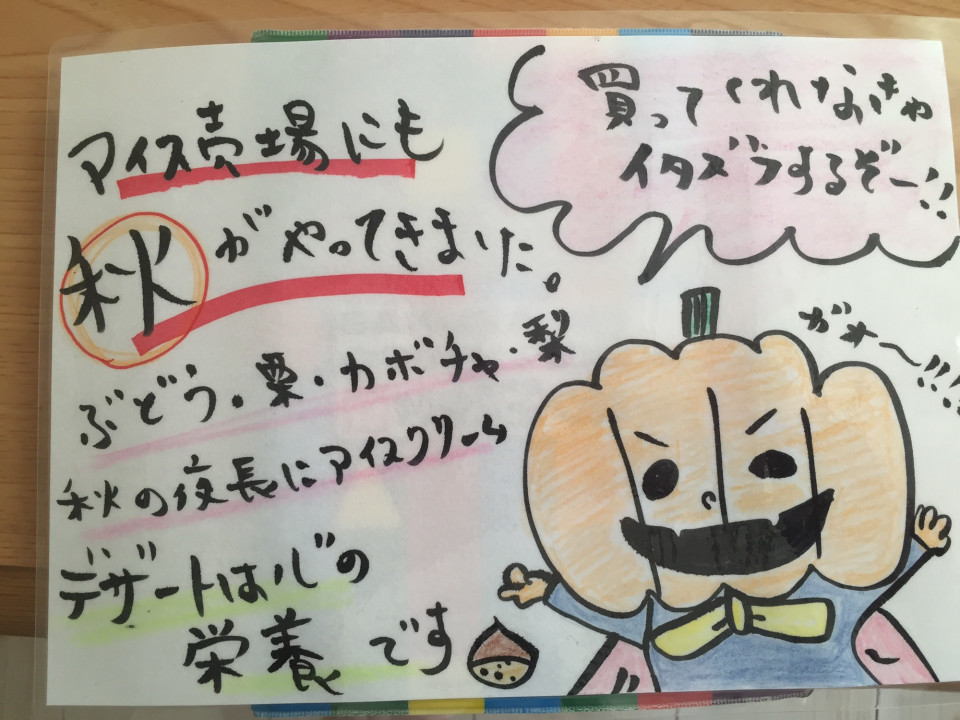 アイス売場にも
秋がやってきました。
ぶどう。栗・カボチャ・梨
秋の夜長にアイスクリーム
デザートは心の
栄養です
買ってくれなきゃ
イタズラするぞー!!
ガオ〜!!!